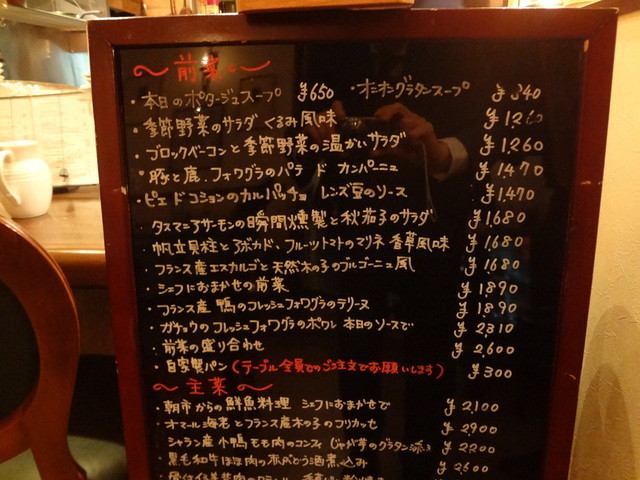 ～前菜～
・本日のポタージュスープ ¥650 ・オニオングラタンスープ ¥840
・季節野菜のサラダ くるみ風味 ¥1,260
・ブロックベーコンと季節野菜の温かいサラダ ¥1,260
・豚と鹿、フォワグラのパテ ド カンパーニュ ¥1,470
・ピエ ド コションのカルパッチョ レンズ豆のソース ¥1,470
・タスマニアサーモンの瞬間燻製と秋茄子のサラダ ¥1,680
・帆立貝柱とアボカド、フルーツトマトのマリネ 香草風味 ¥1,680
・フランス産エスカルゴと天然木の子のブルゴーニュ風 ¥1,680
・シェフにおまかせの前菜 ¥1,890
・フランス産 鴨のフレッシュフォワグラのテリーヌ ¥1,890
・ガチョウのフレッシュフォワグラのポワレ 本日のソースで ¥2,310
・前菜の盛り合わせ ¥2,600
・自家製パン（テーブル全員でのご注文でお願いします） ¥300
～主菜～
・朝市からの鮮魚料理 シェフにおまかせで ¥2,100
・オマール海老とフランス産木の子のフリカッセ ¥2,900
・シャラン産 小鴨モモ肉のコンフィ じゃが芋のグラタン添え ¥2,200
・黒毛和牛ほほ肉の赤ぶどう酒煮込み ¥2,600